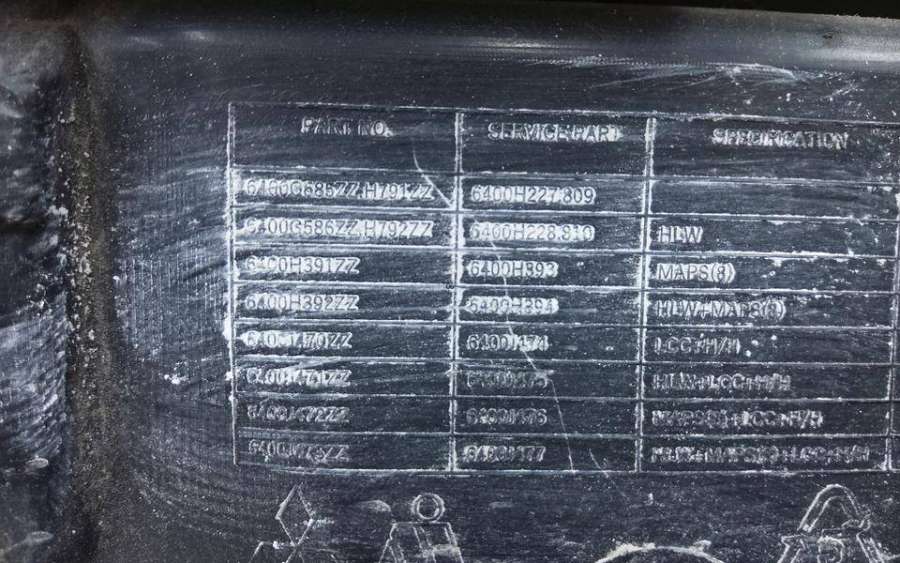 PART NO. SERVICE PART SPECIFICATION
6400G585ZZ,H791ZZ 6400H227,809
6400G586ZZ,H792ZZ 6400H228,810 HLW
6400H391ZZ 6400H393 MAPS(8)
6400H392ZZ 6400H394 HLW+MAPS(8)
6400J470ZZ 6400J474 LCC+H/H
6400J471ZZ HLW+LCC+H/H
6400J472ZZ 6400J476
6400J477